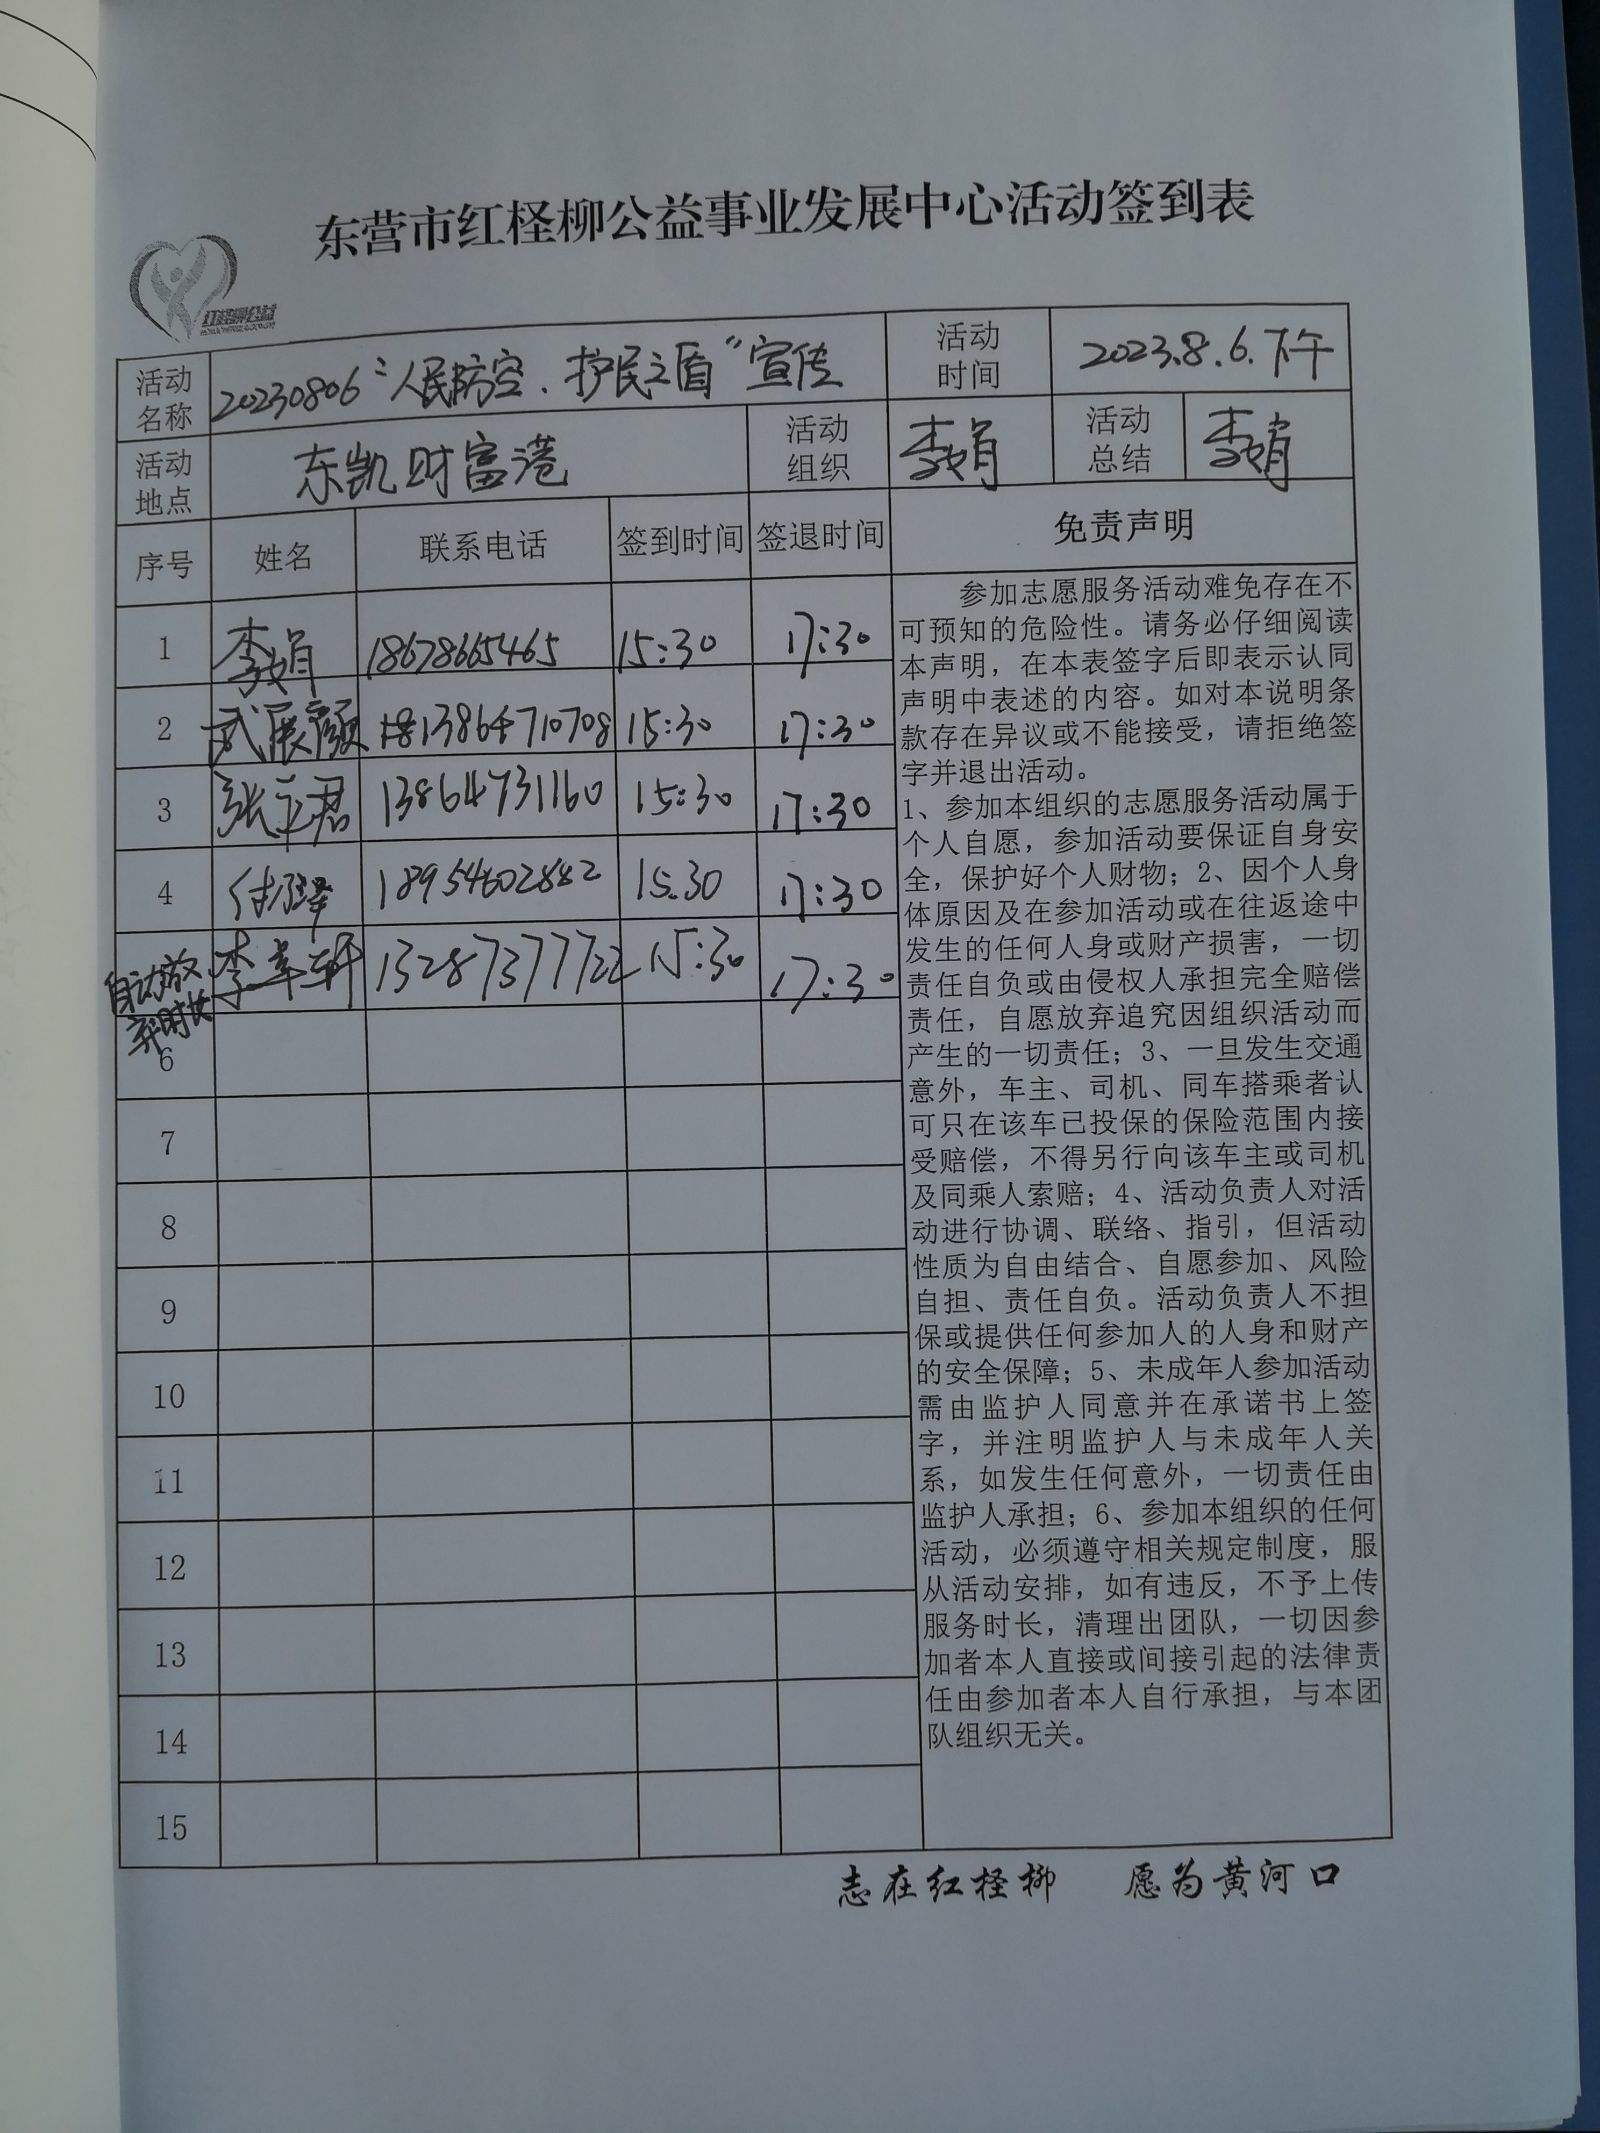 东营市红柽柳公益事业发展中心活动签到表
红柽柳公益
活动名称 20230806“人民防空、护民之盾”宣传 活动时间 2023.8.6.下午
活动地点 东凯财富港 活动组织 李娟 活动总结 李娟
序号 姓名 联系电话 签到时间 签退时间 免责声明
1 李娟 18678665465 15:30 17:30
2 武展颜 13864710708 15:30 17:30
3 张立君 13864731160 15:30 17:30
4 18954602882 15:30 17:30
自动放弃时长 李幸轩 13287377722 15:30 17:30
6
7
8
9
10
11
12
13
14
15
参加志愿服务活动难免存在不
可预知的危险性。请务必仔细阅读
本声明，在本表签字后即表示认同
声明中表述的内容。如对本说明条
款存在异议或不能接受，请拒绝签
字并退出活动。
1、参加本组织的志愿服务活动属于
个人自愿，参加活动要保证自身安
全，保护好个人财物；2、因个人身
体原因及在参加活动或在往返途中
发生的任何人身或财产损害，一切
责任自负或由侵权人承担完全赔偿
责任，自愿放弃追究因组织活动而
产生的一切责任；3、一旦发生交通
意外，车主、司机、同车搭乘者认
可只在该车已投保的保险范围内接
受赔偿，不得另行向该车主或司机
及同乘人索赔；4、活动负责人对活
动进行协调、联络、指引，但活动
性质为自由结合、自愿参加、风险
自担、责任自负。活动负责人不担
保或提供任何参加人的人身和财产
的安全保障；5、未成年人参加活动
需由监护人同意并在承诺书上签
字，并注明监护人与未成年人关
系，如发生任何意外，一切责任由
监护人承担；6、参加本组织的任何
活动，必须遵守相关规定制度，服
从活动安排，如有违反，不予上传
服务时长，清理出团队，一切因参
加者本人直接或间接引起的法律责
任由参加者本人自行承担，与本团
队组织无关。
志在红柽柳 愿为黄河口